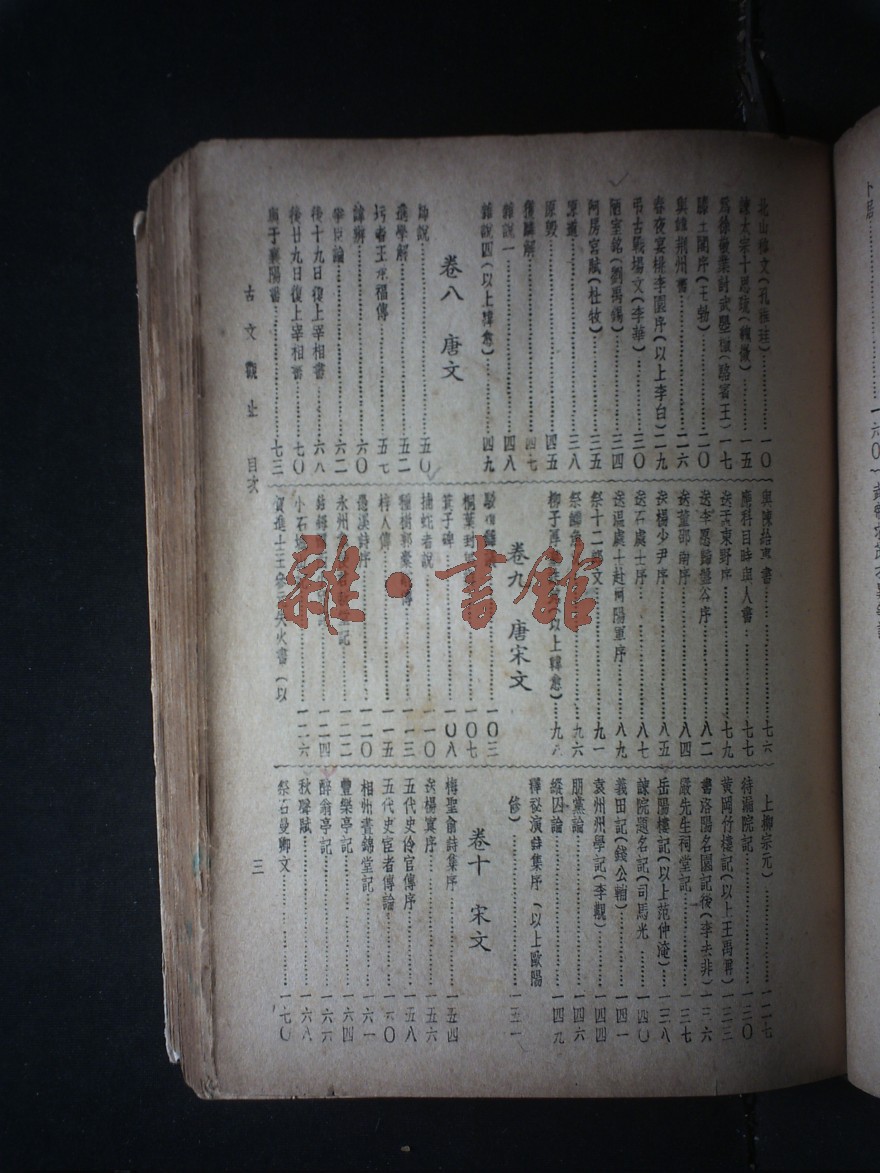 北山移文(孔稚珪)⋯⋯一〇
諫太宗十思疏(魏徵)⋯⋯一五
爲徐敬業討武曌檄(駱賓王)⋯⋯一七
滕王閣序(王勃)⋯⋯二〇
與韓荊州書⋯⋯二六
春夜宴桃李園序(以上李白)⋯⋯二九
弔古戰場文(李華)⋯⋯三〇
陋室銘(劉禹錫)⋯⋯三四
阿房宮賦(杜牧)⋯⋯三五
原道⋯⋯三八
原毀⋯⋯四五
獲麟解⋯⋯四七
雜說一⋯⋯四八
雜說四(以上韓愈)⋯⋯四九
卷八 唐文
師說⋯⋯五〇
進學解⋯⋯五二
圬者王承福傳⋯⋯五七
諱辯⋯⋯六〇
爭臣論⋯⋯六二
後十九日復上宰相書⋯⋯六八
後廿九日復上宰相書⋯⋯七〇
與于襄陽書⋯⋯七三
與陳給事書⋯⋯七六
應科目時與人書⋯⋯七七
送孟東野序⋯⋯七九
送李愿歸盤谷序⋯⋯八二
送董邵南序⋯⋯八四
送楊少尹序⋯⋯八五
送石處士序⋯⋯八七
送溫處士赴河陽軍序⋯⋯八九
祭十二郎文⋯⋯九一
祭鱷魚文⋯⋯九六
柳子厚(以上韓愈)⋯⋯九八
卷九 唐宋文
⋯⋯一〇三
桐葉封⋯⋯一〇七
箕子碑⋯⋯一〇八
捕蛇者說⋯⋯一一〇
種樹郭橐傳⋯⋯一一三
梓人傳⋯⋯一一五
愚溪詩序⋯⋯一二〇
永州記⋯⋯一二二
鈷鉧⋯⋯一二四
小石城⋯⋯一二六
賀進士王參失火書(以
上柳宗元)⋯⋯一二七
待漏院記⋯⋯一三〇
黃岡竹樓記(以上王禹偁)⋯⋯一三三
書洛陽名園記後(李去非)⋯⋯一三六
嚴先生祠堂記⋯⋯一三七
岳陽樓記(以上范仲淹)⋯⋯一三八
諫院題名記(司馬光)⋯⋯一四〇
義田記(錢公輔)⋯⋯一四一
袁州州學記(李覯)⋯⋯一四四
朋黨論⋯⋯一四六
縱囚論⋯⋯一四九
釋祕演詩集序(以上歐陽
修)⋯⋯一五一
卷十 宋文
梅聖俞詩集序⋯⋯一五四
送楊寘序⋯⋯一五六
五代史伶官傳序⋯⋯一五八
五代史宦者傳論⋯⋯一六〇
相州晝錦堂記⋯⋯一六一
豐樂亭記⋯⋯一六四
醉翁亭記⋯⋯一六六
秋聲賦⋯⋯一六八
祭石曼卿文⋯⋯一七〇
古文觀止 目次
三
雜·書館
卜居⋯⋯一六〇